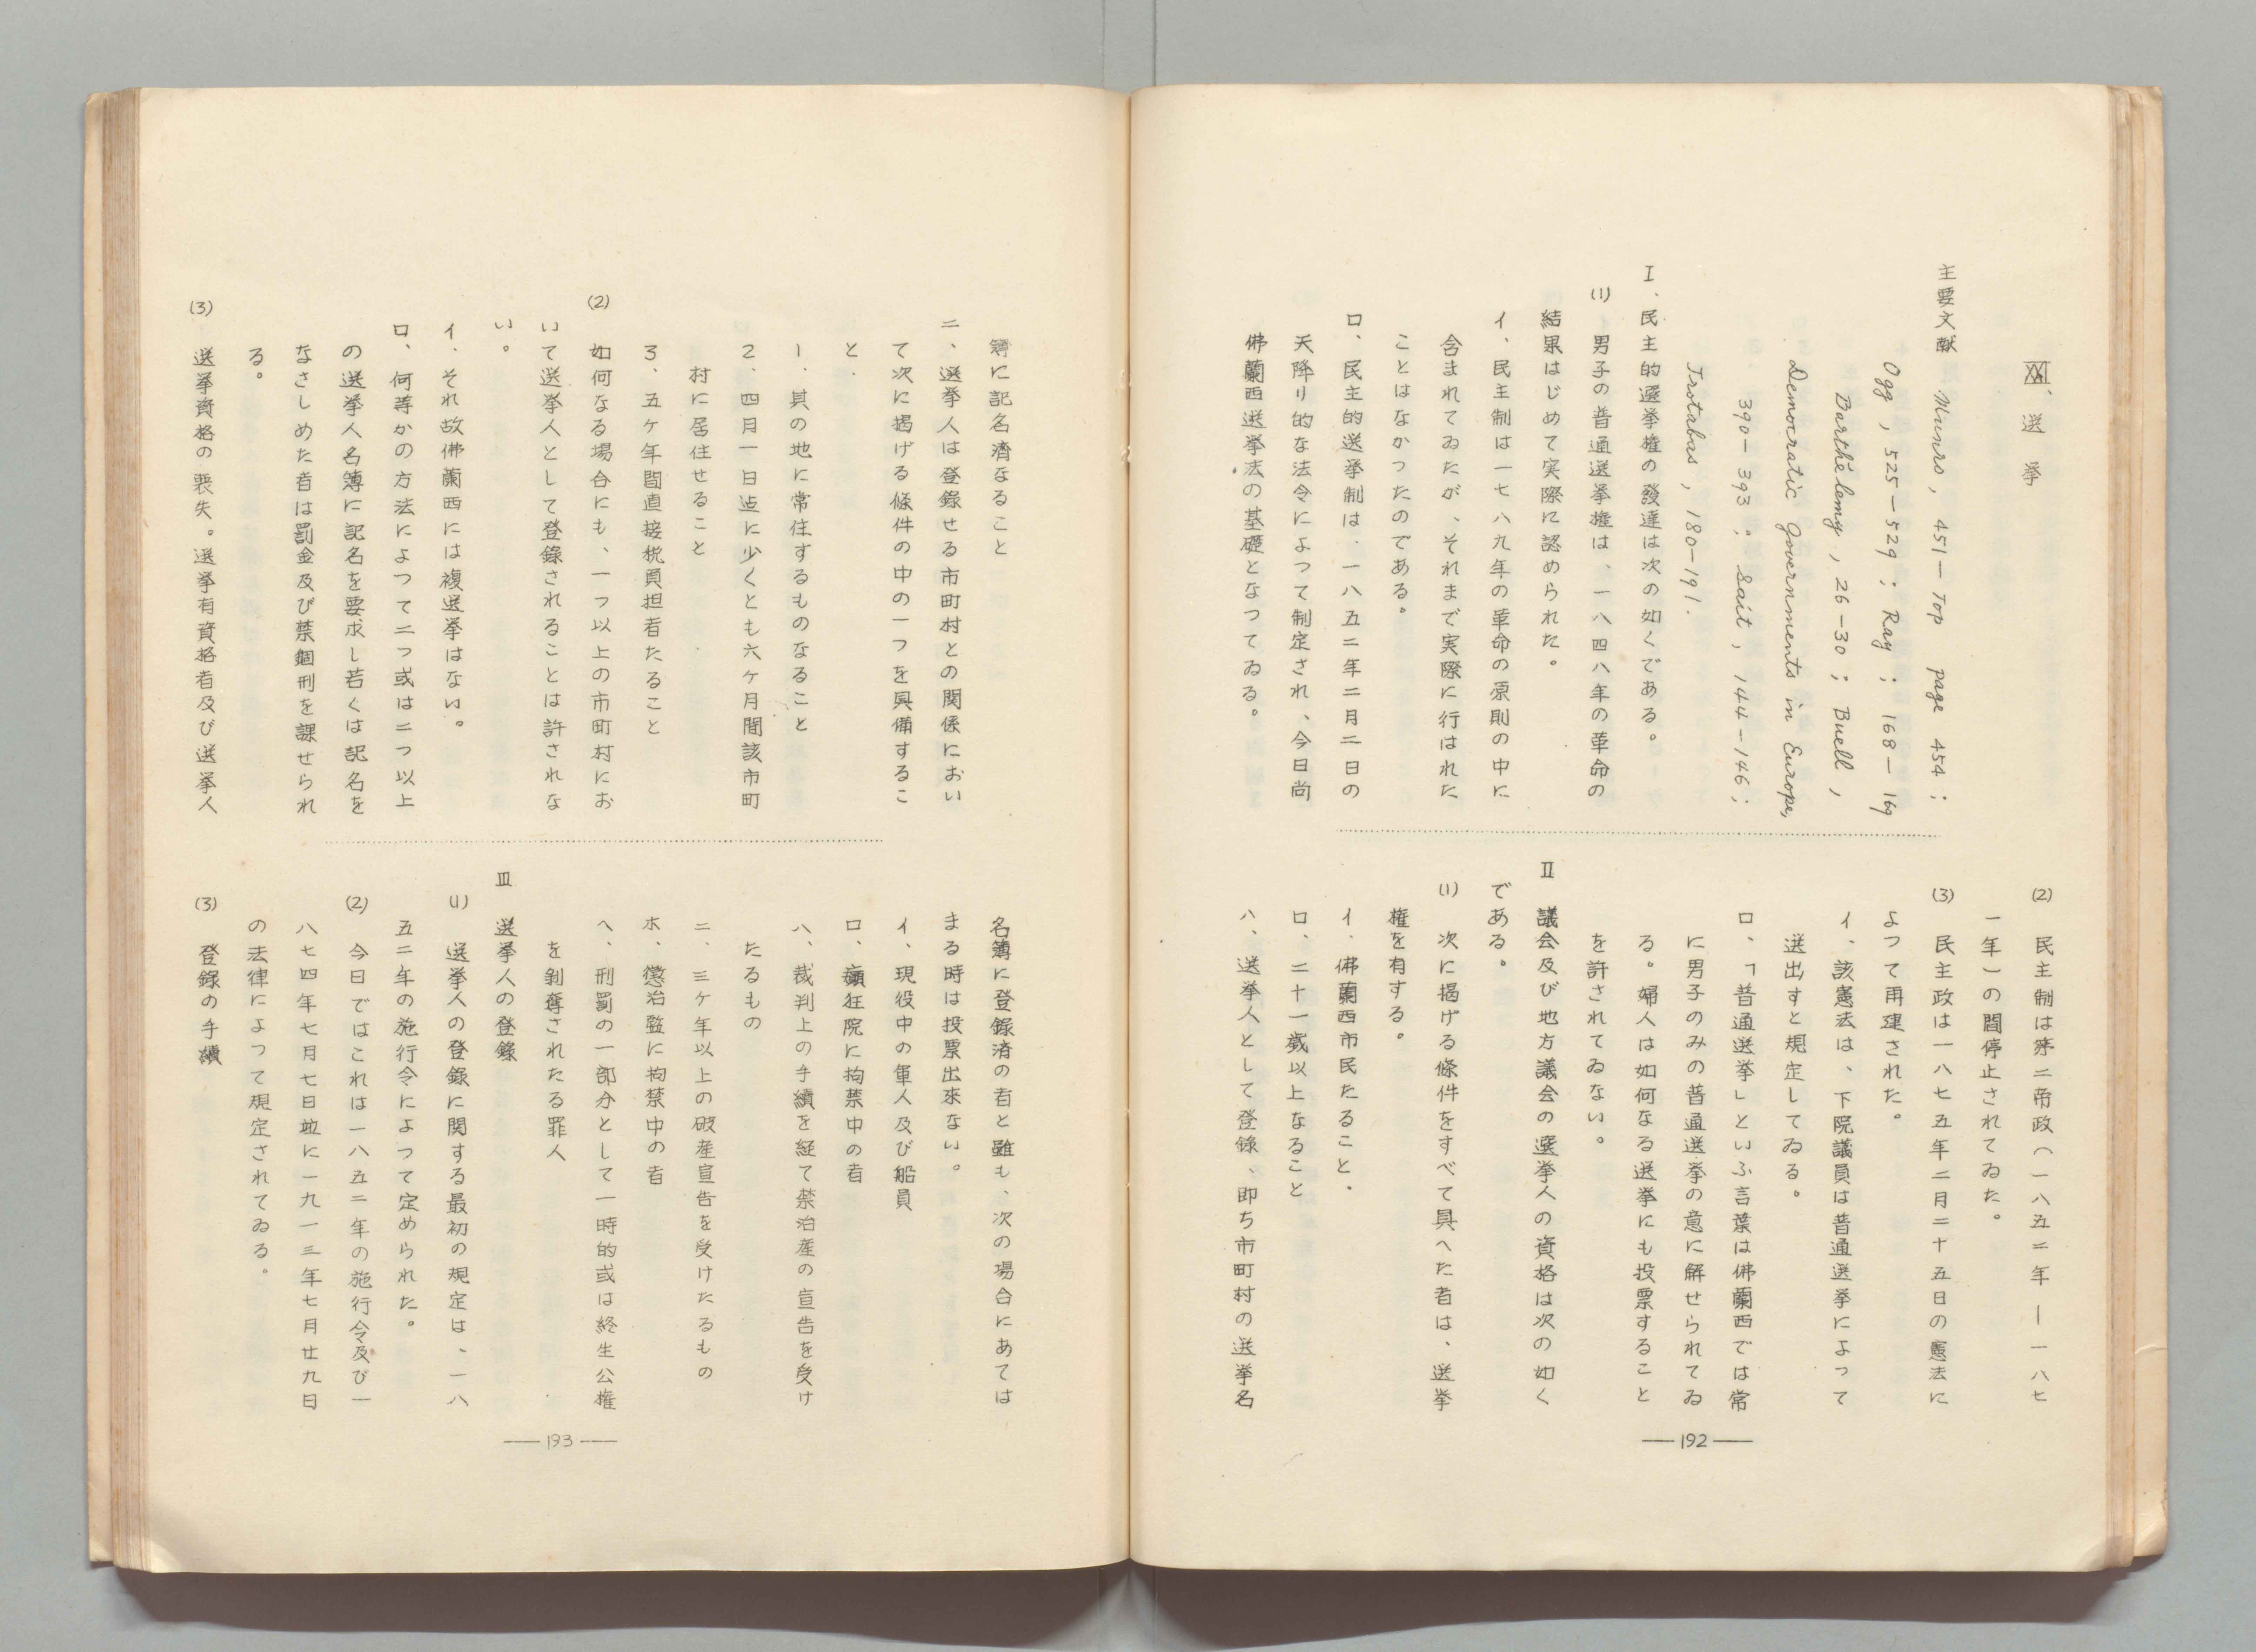 XXI、選挙
主要文献 Munro, 451—Top page 454;
Ogg, 525—529; Ray; 168—169
Barthélemy, 26—30; Buell,
Democratic Governments in Europe,
390—393; Sait, 144—146;
Trotabas, 180—191.
I、民主的選挙権の發達は次の如くである。
(1) 男子の普通選挙権は、一八四八年の革命の
結果はじめて実際に認められた。
イ、民主制は一七八九年の革命の原則の中に
含まれてゐたが、それまで実際に行はれた
ことはなかつたのである。
ロ、民主的選挙制は、一八五二年二月二日の
天降り的な法令によつて制定され、今日尚
佛蘭西選挙法の基礎となつてゐる。
(2) 民主制は第二帝政(一八五二年—一八七
一年)の間停止されてゐた。
(3) 民主政は一八七五年二月二十五日の憲法に
よつて再建された。
イ、該憲法は、下院議員は普通選挙によつて
選出すと規定してゐる。
ロ、「普通選挙」といふ言葉は佛蘭西では常
に男子のみの普通選挙の意に解せられてゐ
る。婦人は如何なる選挙にも投票すること
を許されてゐない。
II 議会及び地方議会の選挙人の資格は次の如く
である。
(1) 次に掲げる條件をすべて具へた者は、選挙
権を有する。
イ、佛蘭西市民たること、
ロ、二十一歳以上なること
ハ、選挙人として登録、即ち市町村の選挙名
—192—
簿に記名濟なること
ニ、選挙人は登錄せる市町村との関係におい
て次に掲げる條件の中の一つを具備するこ
と.
1、其の地に常住するものなること
2、四月一日迄に少くとも六ヶ月間該市町
村に居住せること
3、五ヶ年間直接税負担者たること
(2) 如何なる場合にも、一つ以上の市町村にお
いて選挙人として登錄されることは許されな
い。
イ、それ故佛蘭西には複選挙はない。
ロ、何等かの方法によつて二つ或は二つ以上
の選挙人名簿に記名を要求し若くは記名を
なさしめた者は罰金及び禁錮刑を課せられ
る。
(3) 選挙資格の喪失。選挙有資格者及び選挙人
名簿に登錄済の者と雖も、次の場合にあては
まる時は投票出來ない。
イ、現役中の軍人及び船員
ロ、癲狂院に拘禁中の者
ハ、裁判上の手續を経て禁治産の宣告を受け
たるもの
ニ、三ヶ年以上の破産宣告を受けたるもの
ホ、懲治監に拘禁中の者
ヘ、刑罰の一部分として一時的或は終生公権
を剥奪されたる罪人
III 選挙人の登錄
(1) 選挙人の登錄に関する最初の規定は、一八
五二年の施行令によつて定められた。
(2) 今日ではこれは一八五二年の施行令及び一
八七四年七月七日竝に一九一三年七月廿九日
の法律によつて規定されてゐる。
(3) 登錄の手續
—193—